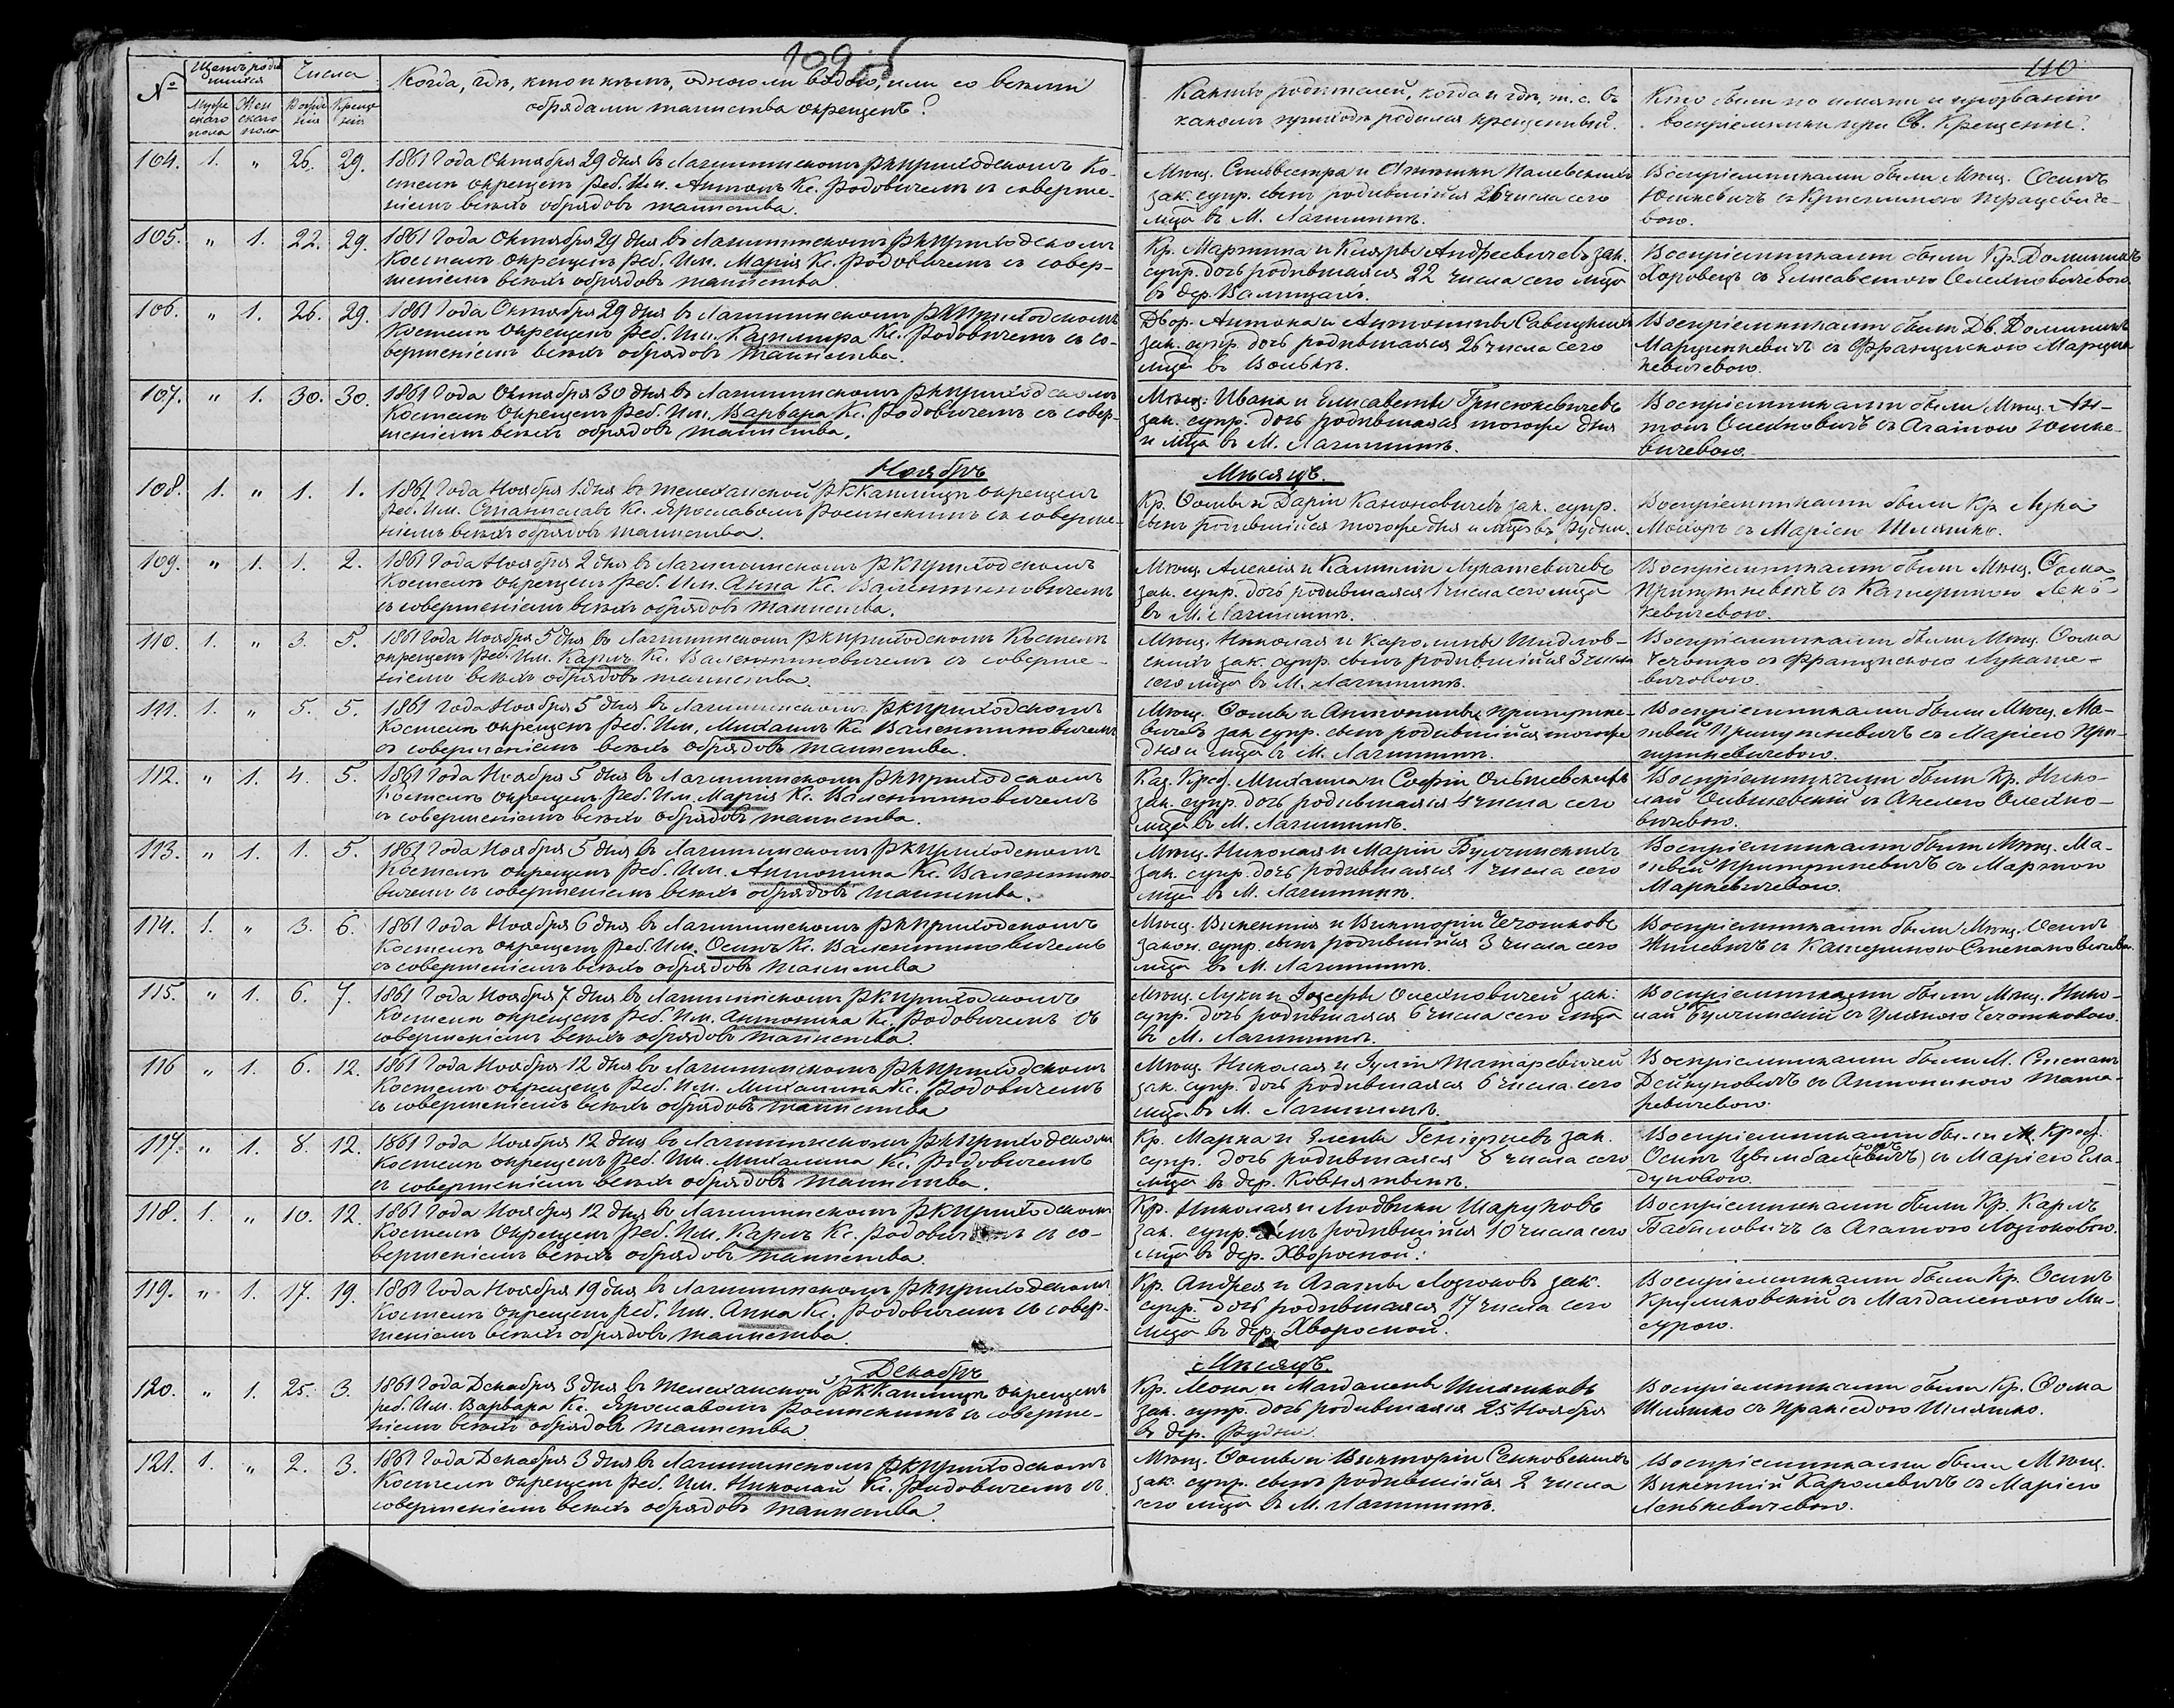 109 об
110
№
Щетъ родившихся
Числа
Мужескаго пола
Женскаго пола
Рожденія
Крещенія
Когда, гдѣ, кто и кѣмъ, одною ли водою, или со всѣми
обрядами таинства окрещенъ?
Какихъ родителей, когда и гдѣ, т. е. въ
какомъ приходѣ родился крещенный?
Кто были по имени и прозванію
воспріемники при Св. Крещеніи?
104. 1. " 26. 29.
1861 Года Октября 29 дня въ Логишинскомъ РКприходскомъ Ко-
стелѣ окрещенъ Реб. Им. Антонъ Кс. Родовичемъ съ соверше-
ніемъ всѣхъ обрядовъ таинства.
Мѣщ. Сильвестра и
зак. супр. сынъ родившійся 26 числа сего
мѣца въ М. Логишинѣ.
Воспріемниками были Мѣщ. Осипъ
Юшкевичъ съ
вою.
105. " 1. 22. 29.
1861 Года Октября 29 дня въ Логишинскомъ РКприходскомъ
Костелѣ окрещенъ Реб. Им. Марія Кс. Родовичемъ съ совер-
шеніемъ всѣхъ обрядовъ таинства.
Кр. Мартина и Кляры Андреевичевъ зак.
супр. дочь родившаяся 22 числа сего мѣца
въ дер. Валищахъ.
Воспріемниками были Кр. Доминикъ
Хоровецъ съ Елисаветою Олехновичевою.
106. " 1. 26. 29.
1861 Года Октября 29 дня въ Логишинскомъ РКприходскомъ
Костелѣ окрещенъ Реб. Им. Казимира Кс. Родовичемъ съ со-
вершеніемъ всѣхъ обрядовъ таинства.
Двор. Антона и Антонины Савицкихъ
зак. супр. дочь родившаяся 26 числа сего
мѣца въ Волькѣ.
Воспріемниками были Дв. Доминикъ
Марцинкевичъ съ Францискою Марцин
кевичевою.
107. " 1. 30. 30.
1861 Года Октября 30 дня въ Логишинскомъ РКприходскомъ
Костелѣ окрещенъ Реб. Им. Варвара Кс. Родовичемъ съ совер-
шеніемъ всѣхъ обрядовъ таинства.
Мѣщ. Ивана и Елисаветы Грисюкевичевъ
зак. супр. дочь родившаяся тогоже дня
и мѣца въ М. Логишинѣ.
Воспріемниками были Мѣщ. Ан-
тонъ Олехновичъ съ Агатою Юшке-
вичевою.
Ноябрь
Мѣсяцъ.
108. 1. " 1. 1.
1861 Года Ноября 1 дня въ Телеханской РККаплицѣ окрещенъ
Реб. Им. Станиславъ Кс. Ярославомъ Росинскимъ съ соверше-
ніемъ всѣхъ обрядовъ таинства.
Кр. Ѳомы и Даріи Канюковичевъ зак. супр.
сынъ родившійся тогоже дня и мѣца въ Рудни.
Воспріемниками были Кр. Лука
Мойоръ съ Маріею Шляшко.
109. " 1. 1. 2.
1861 Года Ноября 2 дня въ Логишинскомъ РКприходскомъ
Костелѣ окрещенъ Реб. Им. Анна Кс. Валентиновичемъ
съ совершеніемъ всѣхъ обрядовъ таинства.
Мѣщ. Алексія и Камиліи Лукашевичевъ
зак. супр. дочь родившаяся 1 числа сего мѣца
въ М. Логишинѣ.
Воспріемниками были Мѣщ. Ѳома
Припутневичъ съ Катериною Лень-
кевичевою.
110. 1. " 3. 5.
1861 Года Ноября 5 дня въ Логишинскомъ РКприходскомъ Костелѣ
окрещенъ Реб. Им. Карлъ Кс. Валентиновичемъ съ соверше-
ніемъ всѣхъ обрядовъ таинства.
Мѣщ. Николая и Каролины Шидлов-
скихъ зак. супр. сынъ родившійся 3 числа
сего мѣца въ М. Логишинѣ.
Воспріемниками были Мѣщ. Ѳома
Чечотко съ Францискою Лукаше-
вичевою.
111. 1. " 5. 5.
1861 Года Ноября 5 дня въ Логишинскомъ РКприходскомъ
Костелѣ окрещенъ Реб. Им. Михаилъ Кс. Валентиновичемъ
съ совершеніемъ всѣхъ обрядовъ таинства.
Мѣщ. Ѳомы и Антонины Припутне-
вичевъ зак. супр. сынъ родившійся тогоже
дня и мѣца въ М. Логишинѣ.
Воспріемниками были Мѣщ. Ма-
твей Припутневичъ съ Маріею При-
путневичевою.
112. " 1. 4. 5.
1861 Года Ноября 5 дня въ Логишинскомъ РКприходскомъ
Костелѣ окрещенъ Реб. Им. Марія Кс. Валентиновичемъ
съ совершеніемъ всѣхъ обрядовъ таинства.
Каз. Крес. Михаила и Софіи Ольшевскихъ
зак. супр. дочь родившаяся 4 числа сего
мѣца въ М. Логишинѣ.
Воспріемниками были Кр. Нико-
лай Ольшевскій съ Анелею Олехно-
вичевою.
113. " 1. 1. 5.
1861 Года Ноября 5 дня въ Логишинскомъ РКприходскомъ
Костелѣ окрещенъ Реб. Им. Антонина Кс. Валентино-
вичемъ съ совершеніемъ всѣхъ обрядовъ таинства.
Мѣщ. Николая и Маріи Булчинскихъ
зак. супр. дочь родившаяся 1 числа сего
мѣца въ М. Логишинѣ.
Воспріемниками были Мѣщ. Ма-
твей Припутневичъ съ Мартою
Маркевичевою.
114. 1. " 3. 6.
1861 Года Ноября 6 дня въ Логишинскомъ РКприходскомъ
Костелѣ окрещенъ Реб. Им. Осипъ Кс. Валентиновичемъ
съ совершеніемъ всѣхъ обрядовъ таинства
Мѣщ. Викентія и Викторіи Чечотковъ
закон. супр. сынъ родившійся 3 числа сего
мѣца въ М. Логишинѣ.
Воспріемниками были Мѣщ. Осипъ
Жилевичъ съ Катериною Степановичевою.
115. " 1. 6. 7.
1861 Года Ноября 7 дня въ Логишинскомъ РКприходскомъ
Костелѣ окрещенъ Реб. Им. Антонина Кс. Родовичемъ съ
совершеніемъ всѣхъ обрядовъ таинства.
Мѣщ. Луки и Іозефы Олехновичей зак.
супр. дочь родившаяся 6 числа сего мѣца
въ М. Логишинѣ.
Воспріемниками были Мѣщ. Нико-
лай Булчинскій съ Уляною Чечотковою.
116 " 1. 6. 12.
1861 Года Ноября 12 дня въ Логишинскомъ РКприходскомъ
Костелѣ окрещенъ Реб. Им. Михалина Кс. Родовичемъ
съ совершеніемъ всѣхъ обрядовъ таинства
Мѣщ. Николая и Юліи Татаревичей
зак. супр. дочь родившаяся 6 числа сего
мѣца въ М. Логишинѣ.
Воспріемниками были М. Степанъ
Дейкуновичъ съ Антониною Тата-
ревичевою.
117. " 1. 8. 12.
1861 Года Ноября 12 дня въ Логишинскомъ РКприходскомъ
Костелѣ окрещенъ Реб. Им. Михалина Кс. Родовичемъ
съ совершеніемъ всѣхъ обрядовъ таинства.
Кр. Марка и Елены зак.
супр. дочь родившаяся 8 числа сего
мѣца въ дер. Ковнятинѣ.
Воспріемниками были Крес.
Осипъ съ Маріею Гла-
дуновою.
118. 1. " 10. 12.
1861 Года Ноября 12 дня въ Логишинскомъ РКприходскомъ
Костелѣ окрещенъ Реб. Им. Карлъ Кс. Родовичемъ съ со-
вершеніемъ всѣхъ обрядовъ таинства.
Кр. Николая и Людвики Шаруховъ
зак. супр. сынъ родившійся 10 числа сего
мѣца въ дер. Хворосной.
Воспріемниками были Кр. Карлъ
Бабиловичъ съ Агатою Лозюковою.
119. " 1. 17. 19.
1861 Года Ноября 19 дня въ Логишинскомъ РКприходскомъ
Костелѣ окрещенъ Реб. Им. Анна Кс. Родовичемъ съ совер-
шеніемъ всѣхъ обрядовъ таинства.
Кр. Андрея и Агаты Лозюковъ зак.
супр. дочь родившаяся 17 числа сего
мѣца въ дер. Хворосной.
Воспріемниками были Кр. Осипъ
Круликовскій съ Магдаленою Ми-
сурою.
Декабрь
Мѣсяцъ.
120. " 1. 25. 3.
1861 Года Декабря 3 дня въ Телеханской РККаплицѣ окрещенъ
реб. Им. Варвара Кс. Ярославомъ Росинскимъ съ соверше-
ніемъ всѣхъ обрядовъ таинства
Кр. Леона и Магдалены Шляшковъ
зак. супр. дочь родившаяся 25 Ноября
въ дер. Рудни.
Воспріемниками были Кр. Ѳома
Шляшко съ Пракседою Шляшко.
121. 1. " 2. 3.
1861 Года Декабря 3 дня въ Логишинскомъ РКприходскомъ
Костелѣ окрещенъ Реб. Им. Николай Кс. Родовичемъ съ
совершеніемъ всѣхъ обрядовъ таинства.
Мѣщ. Ѳомы и Викторіи Сенковскихъ
зак. супр. сынъ родившійся 2 числа
сего мѣца въ М. Логишинѣ.
Воспріемниками были Мѣщ.
Викентій Каролевичъ съ Маріею
Ленькевичевою.